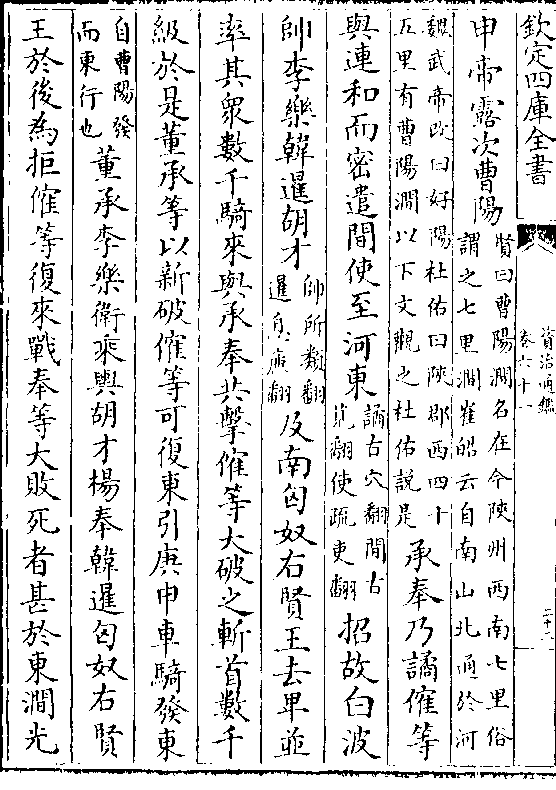 欽定四庫全書
資治通鑑
卷六十一
二十二
申帝露次曹陽
賢曰曹陽澗名在今陝州西南七里俗
謂之七里澗崔皓云自南山北通於河
魏武帝改曰好陽杜佑曰陜郡西四十
五里有曹陽澗以下文觀之杜佑說是
承奉乃譎傕等
與連和而密遣間使至河東
譎古穴翻間古
莧翻使疏吏翻
招故白波
帥李樂韓暹胡才
帥所類翻
暹息廉翻
及南匈奴右賢王去卑並
率其衆數千騎來與承奉共擊傕等大破之斬首數千
級於是董承等以新破傕等可復東引庚申車騎發東
自曹陽發
而東行也
董承李樂衛乘輿胡才楊奉韓暹匈奴右賢
王於後為拒傕等復來戰奉等大敗死者甚於東澗光